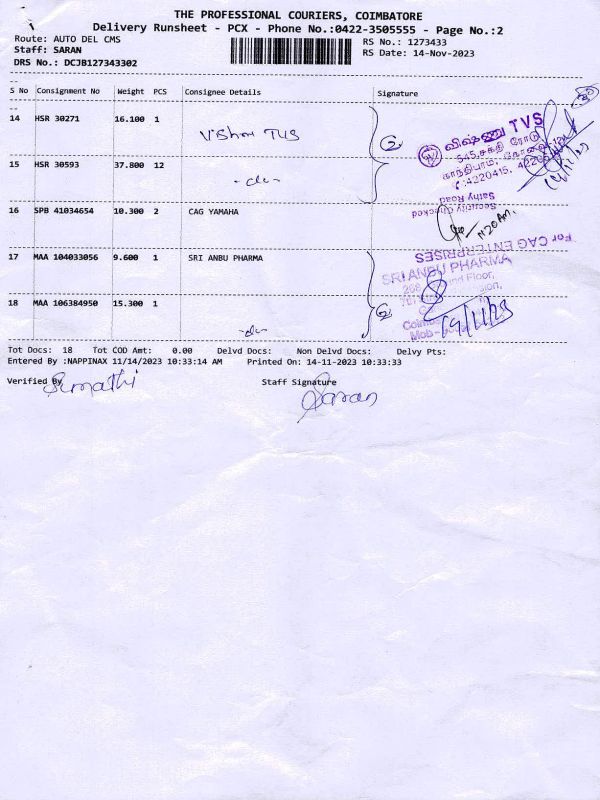 THE PROFESSIONAL COURIERS, COIMBATORE
Delivery Runsheet - PCX - Phone No.:0422-3505555 - Page No.:2
Route: AUTO DEL CMS
RS No.: 1273433
Staff: SARAN
RS Date: 14-Nov-2023
DRS No.: DCJB127343302
S No Consignment No Weight PCS Consignee Details Signature
14 HSR 30271 16.100 1 Vishnu TVS
விஷ்ணு TVS
545, சக்தி ரோடு
காந்திபுரம்,
4220415,
15 HSR 30593 37.800 12 -do-
Sathy Road
Security Checked
16 SPB 41034654 10.300 2 CAG YAMAHA
11:20 AM.
For CAG ENTERPRISES
17 MAA 104033056 9.600 1 SRI ANBU PHARMA
SRI ANBU PHARMA
Floor,
18 MAA 106384950 15.300 1 -do-
14/11/23
Tot Docs: 18 Tot COD Amt: 0.00 Delvd Docs: Non Delvd Docs: Delvy Pts:
Entered By :NAPPINAX 11/14/2023 10:33:14 AM Printed On: 14-11-2023 10:33:33
Verified By Sumathi
Staff Signature
Saran